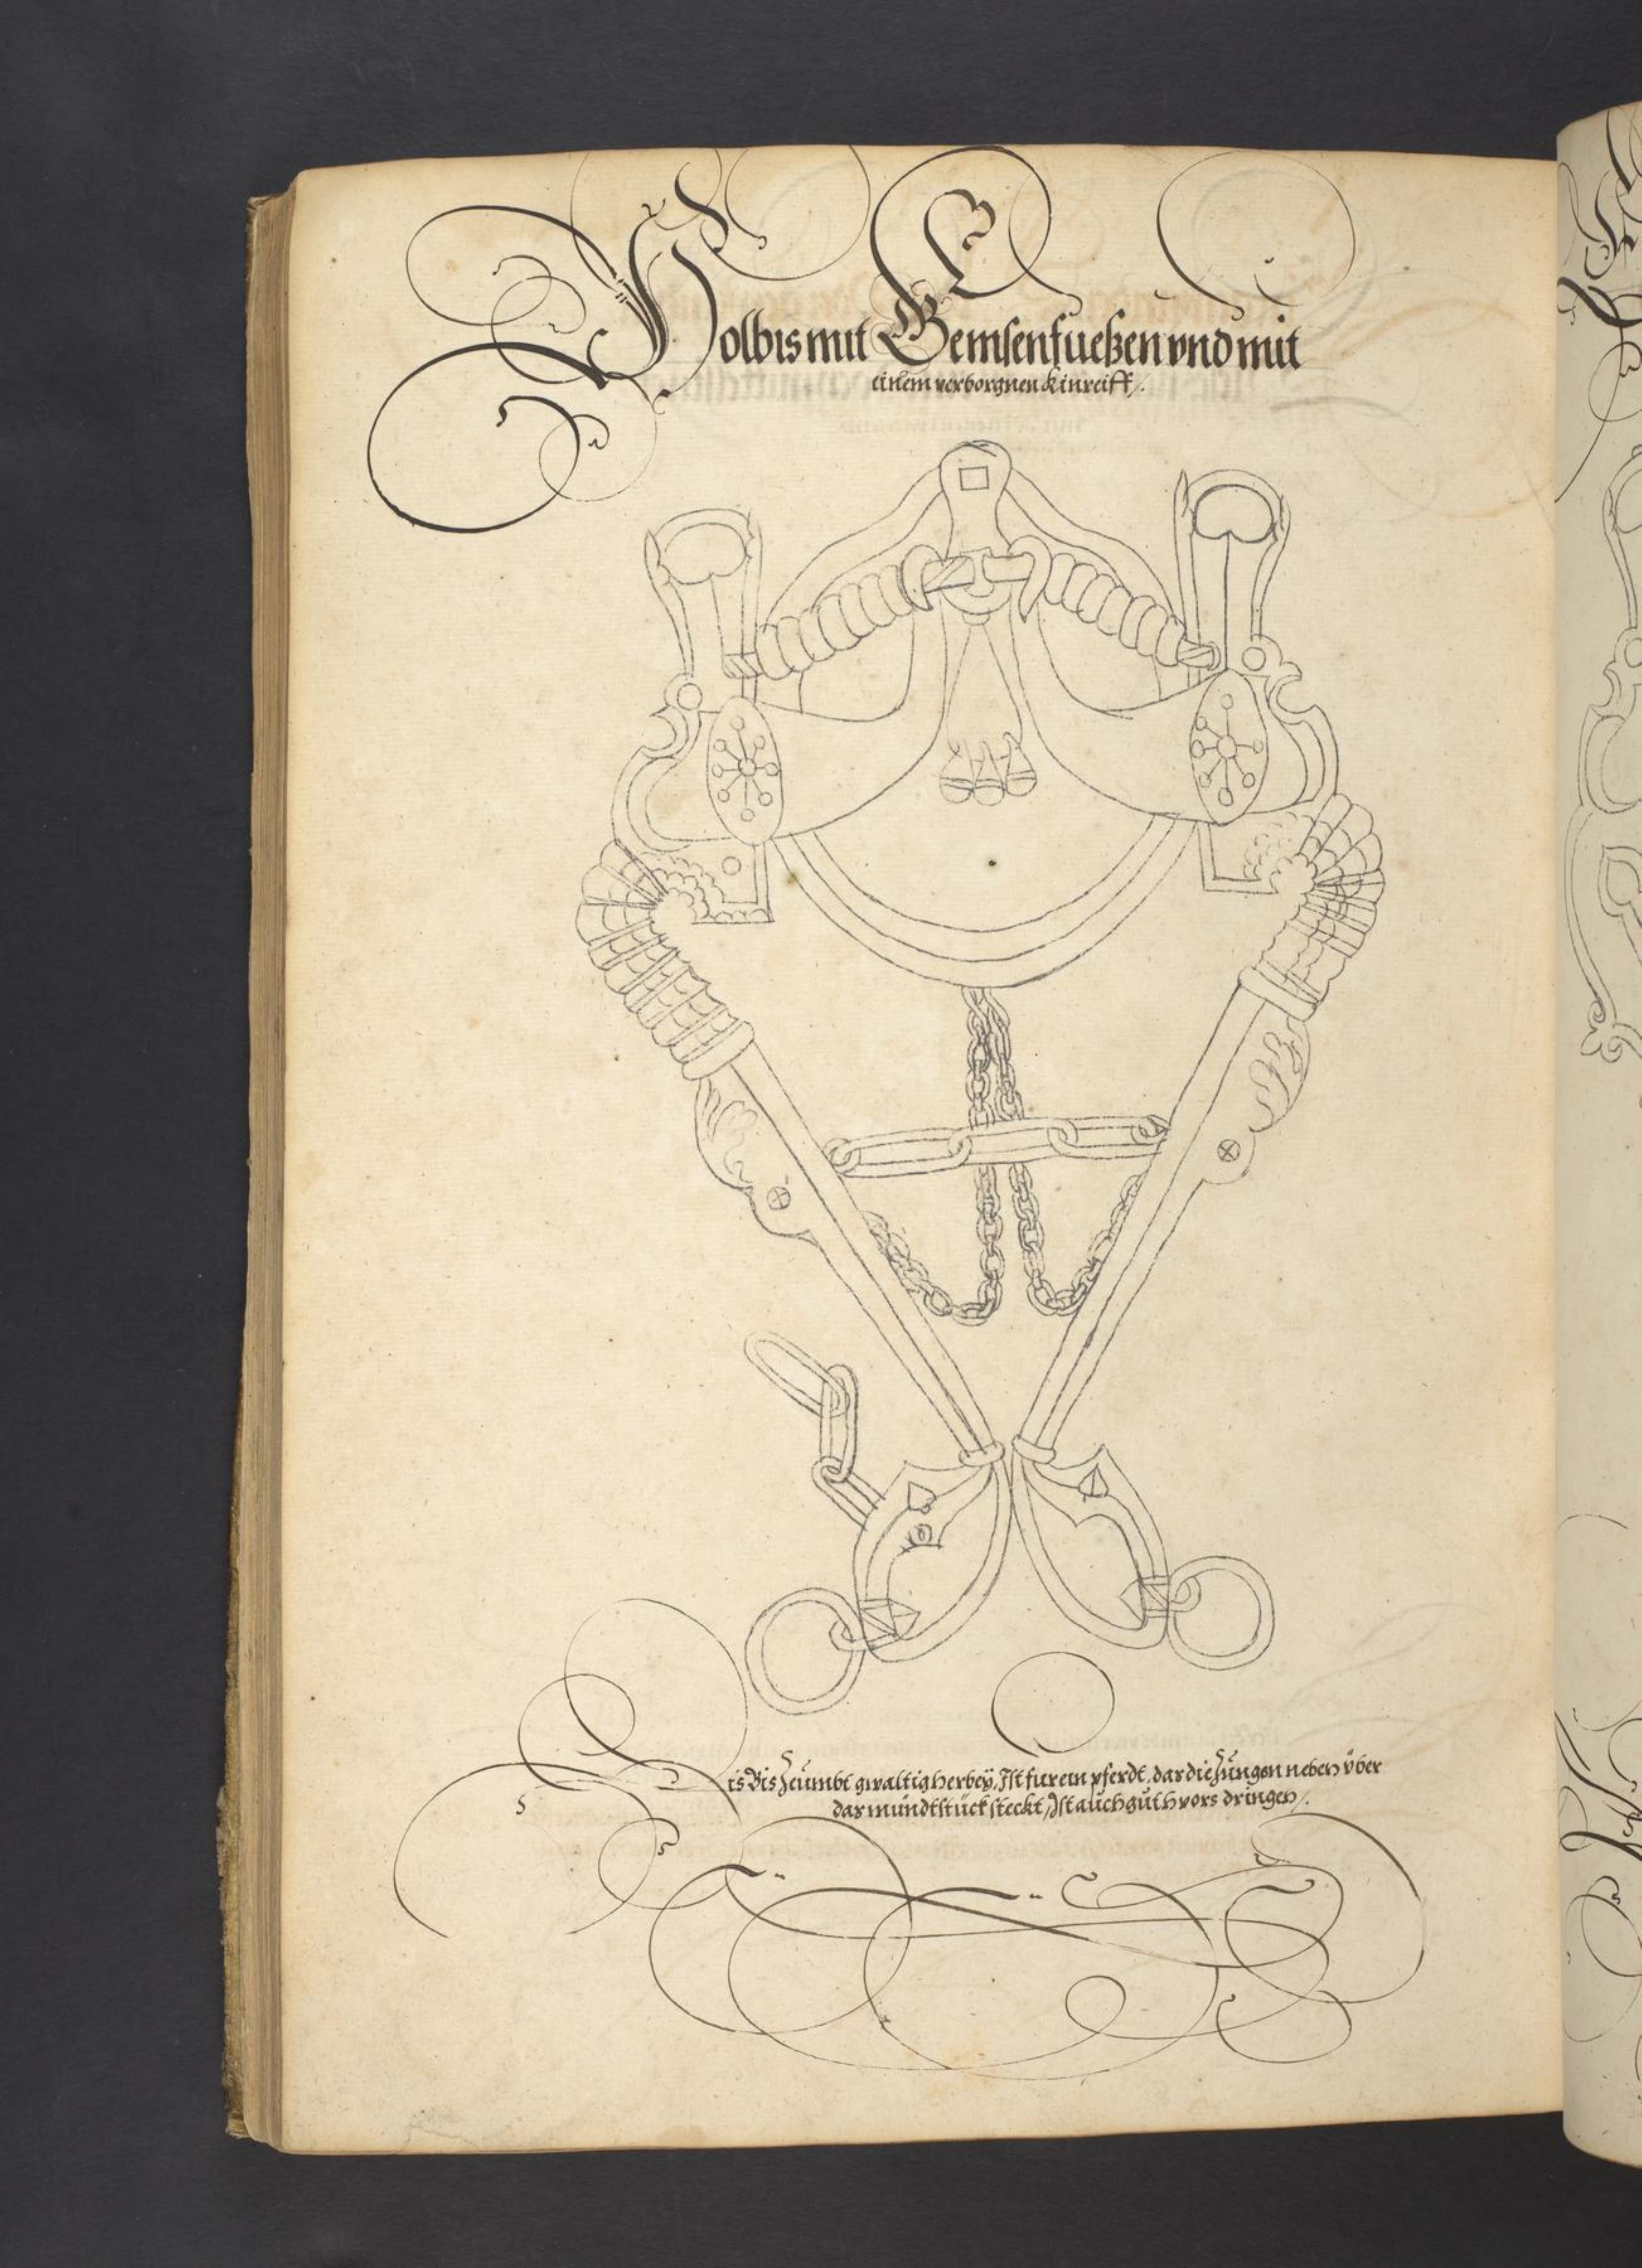 Holbis mit Gemsenfueßen vnd mit
einem verborgnen kinreiff /.
is Bis Zeumbt gwaltig herbeÿ, Ist fur ein pferdt, das die Zungen neben vber
das mundtstuck steckt, Ist auch guth vors dringen /.